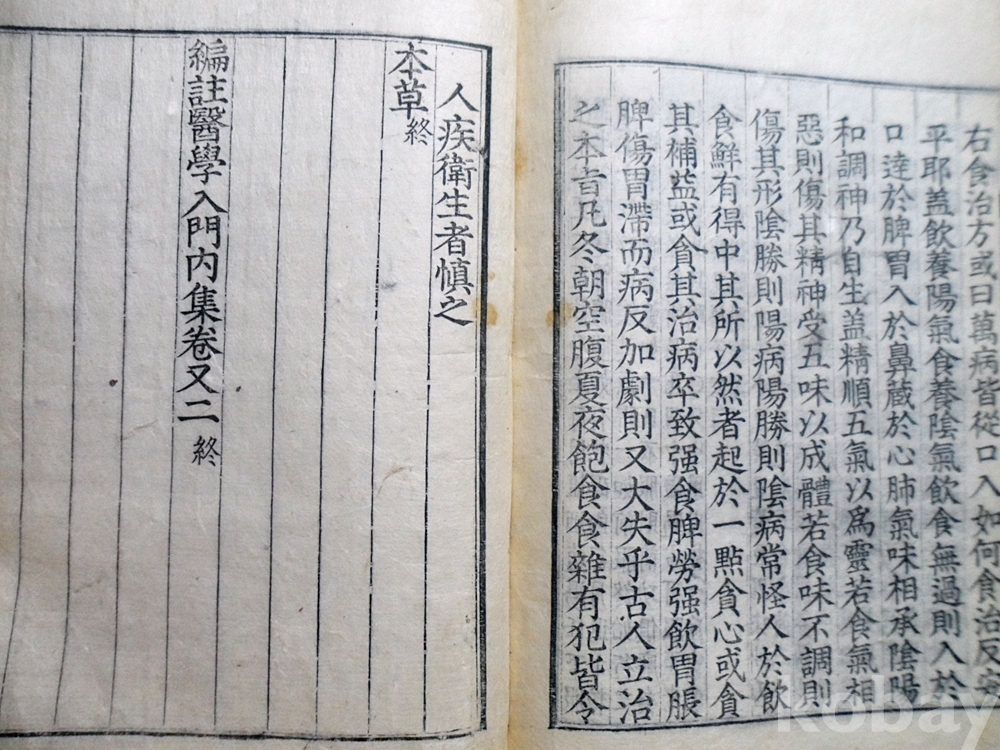 右食治方或曰萬病皆從口入如何食治反安
平耶盖飲養陽氣食養陰氣飲食無過則入於
口達於脾胃入於鼻藏於心肺氣味相承陰陽
和調神乃自生盖精順五氣以爲靈若食氣相
惡則傷其精神受五味以成體若食味不調則
傷其形陰勝則陽病陽勝則陰病常怪人於飲
食鮮有得中其所以然者起於一點貪心或貪
其補益或貪其治病卒致强食脾勞强飲胃脹
脾傷胃滯而病反加劇則又大失乎古人立治
之本旨凡冬朝空腹夏夜飽食食雜有犯皆令
人疾衛生者慎之
本草 終
編註醫學入門內集卷又二 終
kobay